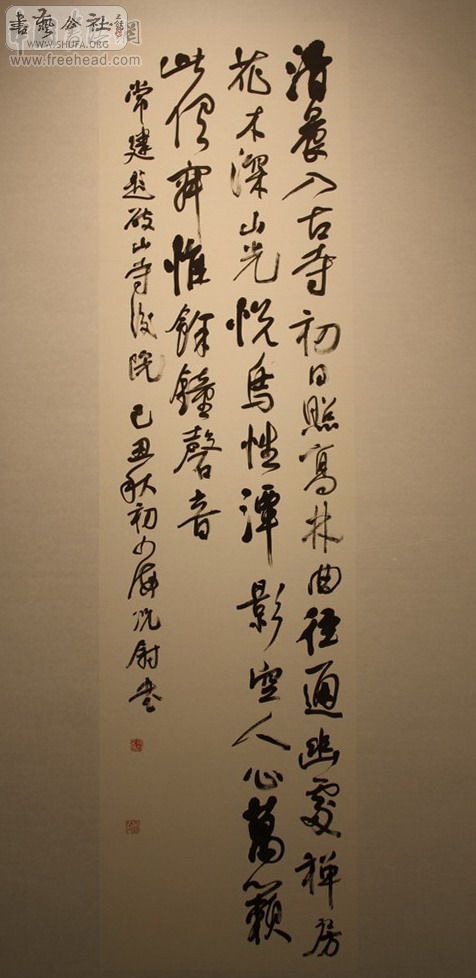 書藝公社
WWW.SHUFA.ORG
www.freehead.com
清晨入古寺初日照高林曲徑通幽處禅房
花木深山光悦鳥性潭影空人心萬籟
此俱寂惟餘鐘磬音
常建題破山寺後院 己丑秋初况尉書